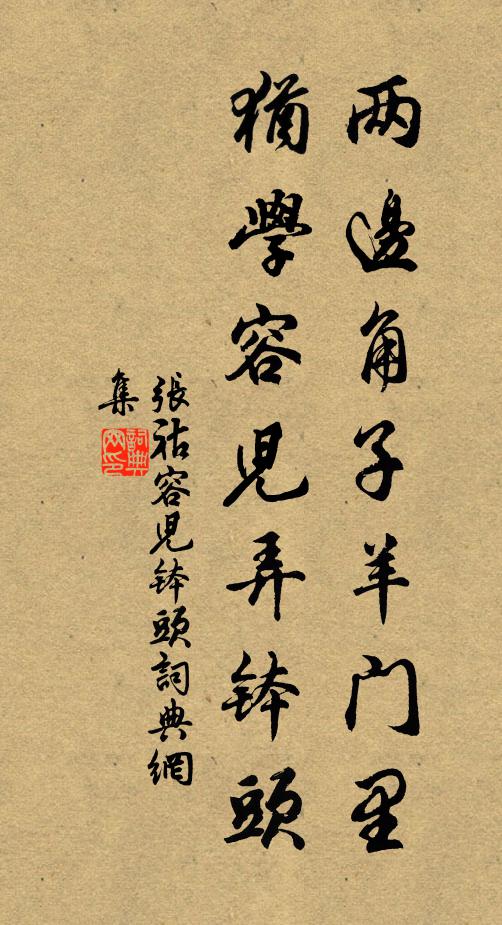 两邊角子羊门里
猶學容児弄鉢頭
張祜容児鉢頭詞典網
集
詞典
网印